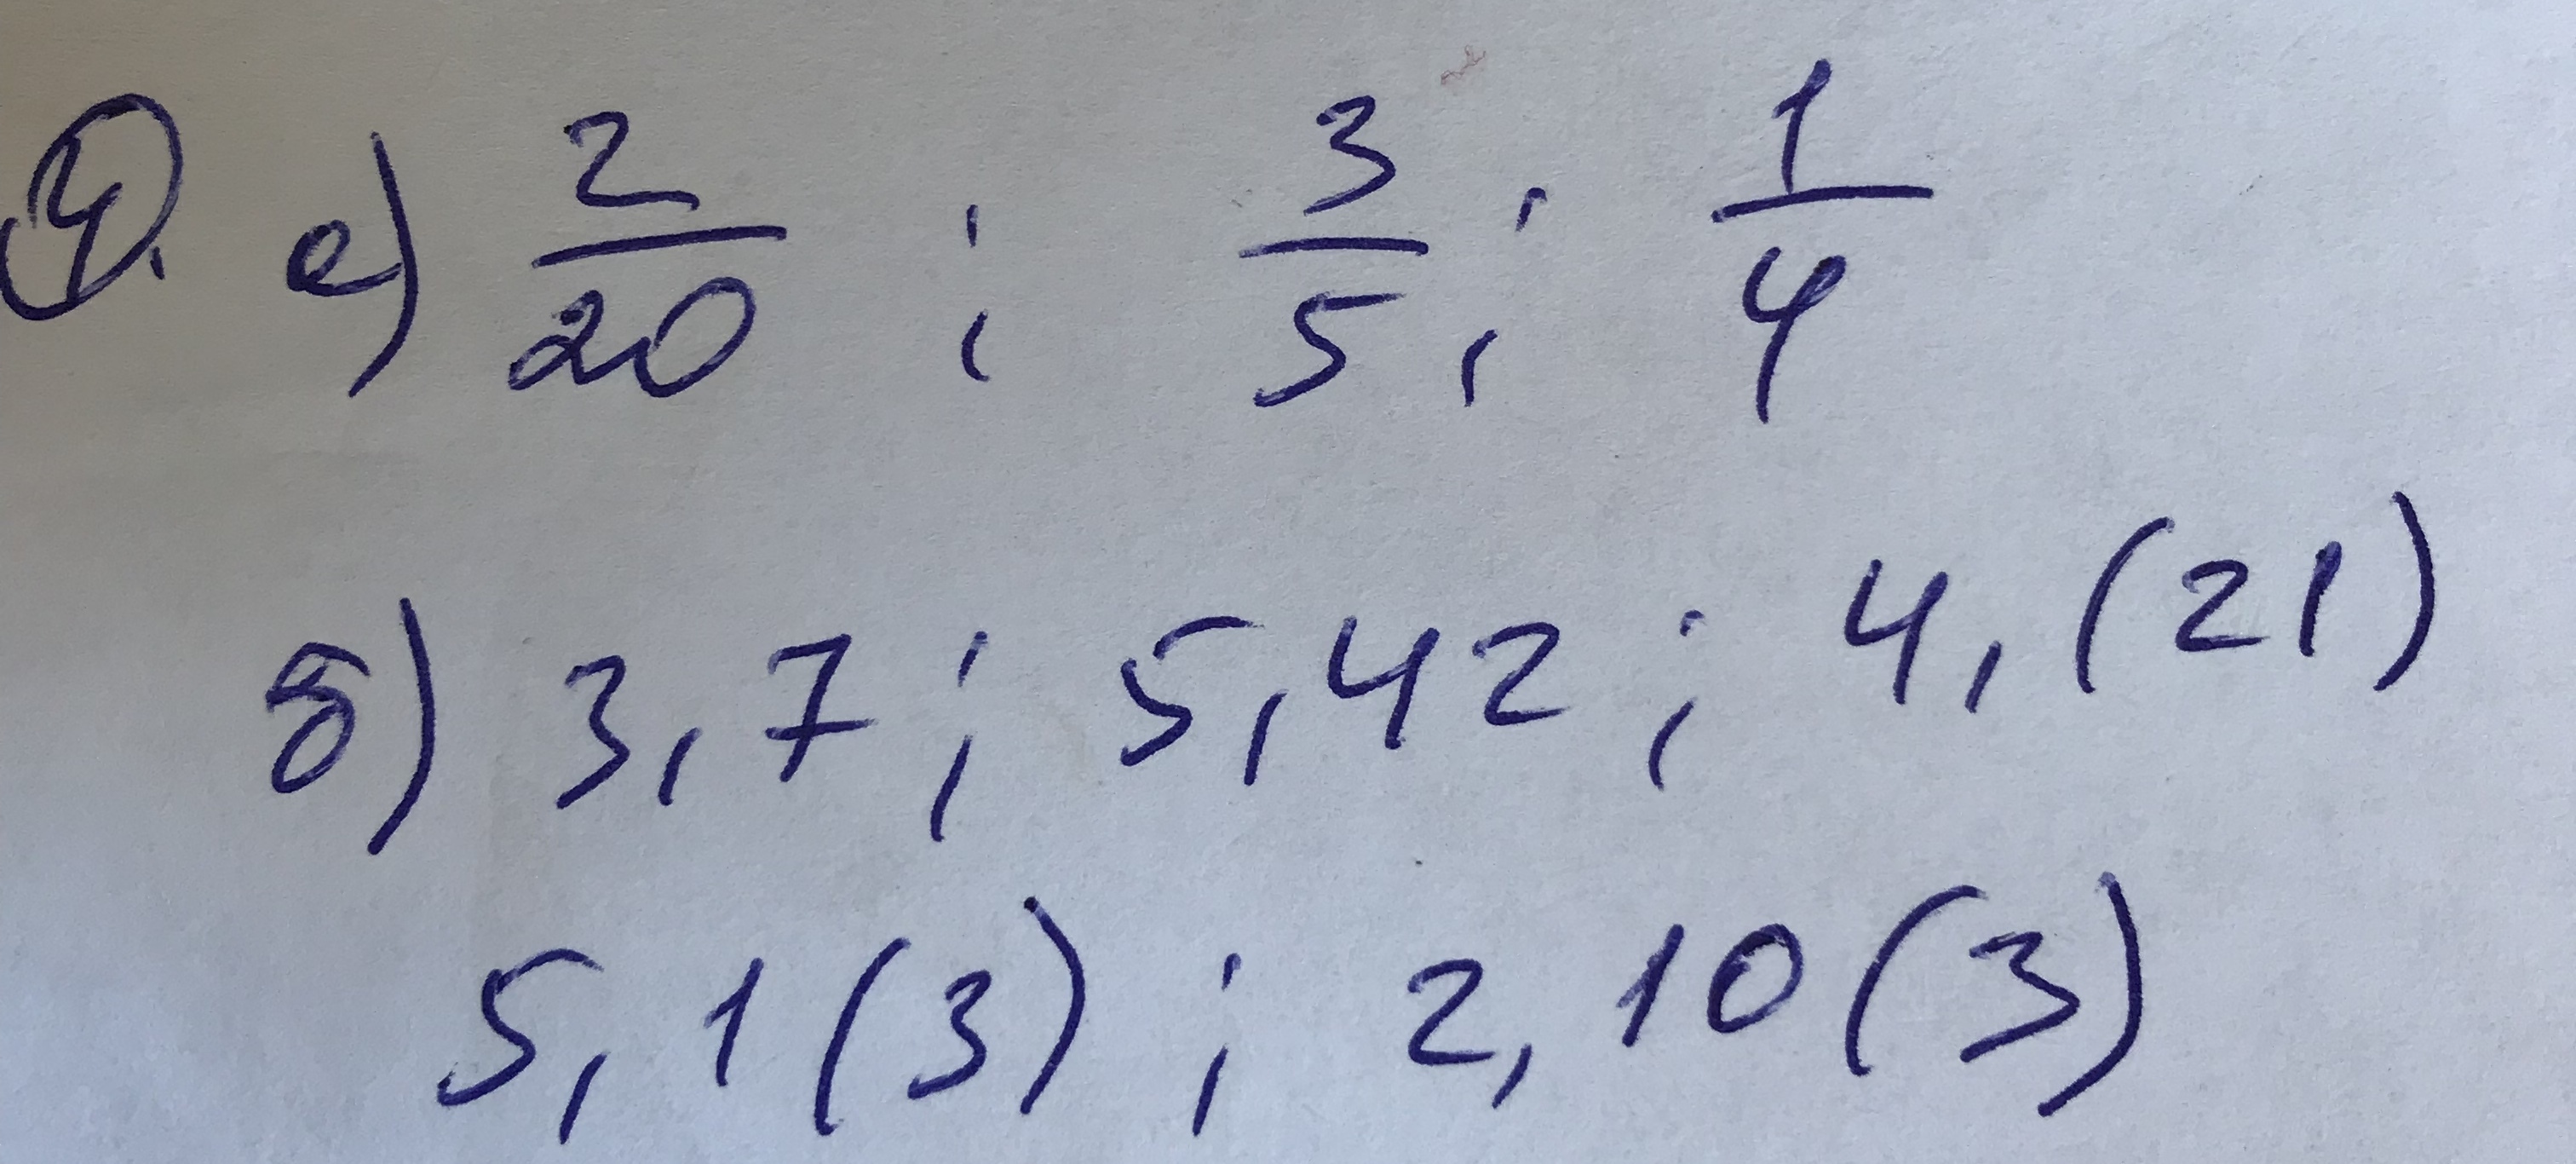 4. а) 2/20 ; 3/5 ; 1/4
б) 3,7 ; 5,42 ; 4,(21)
5,1(3) ; 2,10(3)